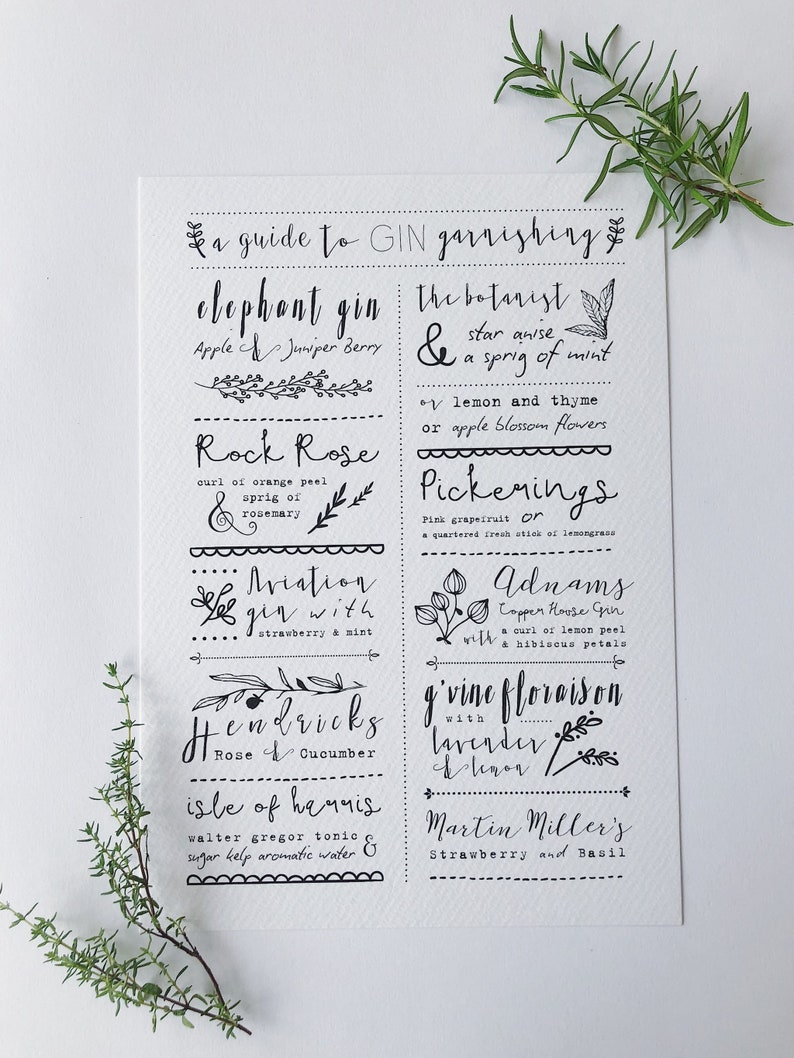 a guide to GIN garnishing
elephant gin
Apple & Juniper Berry
Rock Rose
curl of orange peel
& sprig of
rosemary
Aviation
gin with
strawberry & mint
Hendricks
Rose & Cucumber
isle of harris
walter gregor tonic &
sugar kelp aromatic water
the botanist
& star anise
a sprig of mint
or lemon and thyme
or apple blossom flowers
Pickerings
Pink grapefruit or
a quartered fresh stick of lemongrass
Adnams
Copper House Gin
with a curl of lemon peel
& hibiscus petals
g'vine floraison
with
lavender
& lemon
Martin Miller's
Strawberry and Basil